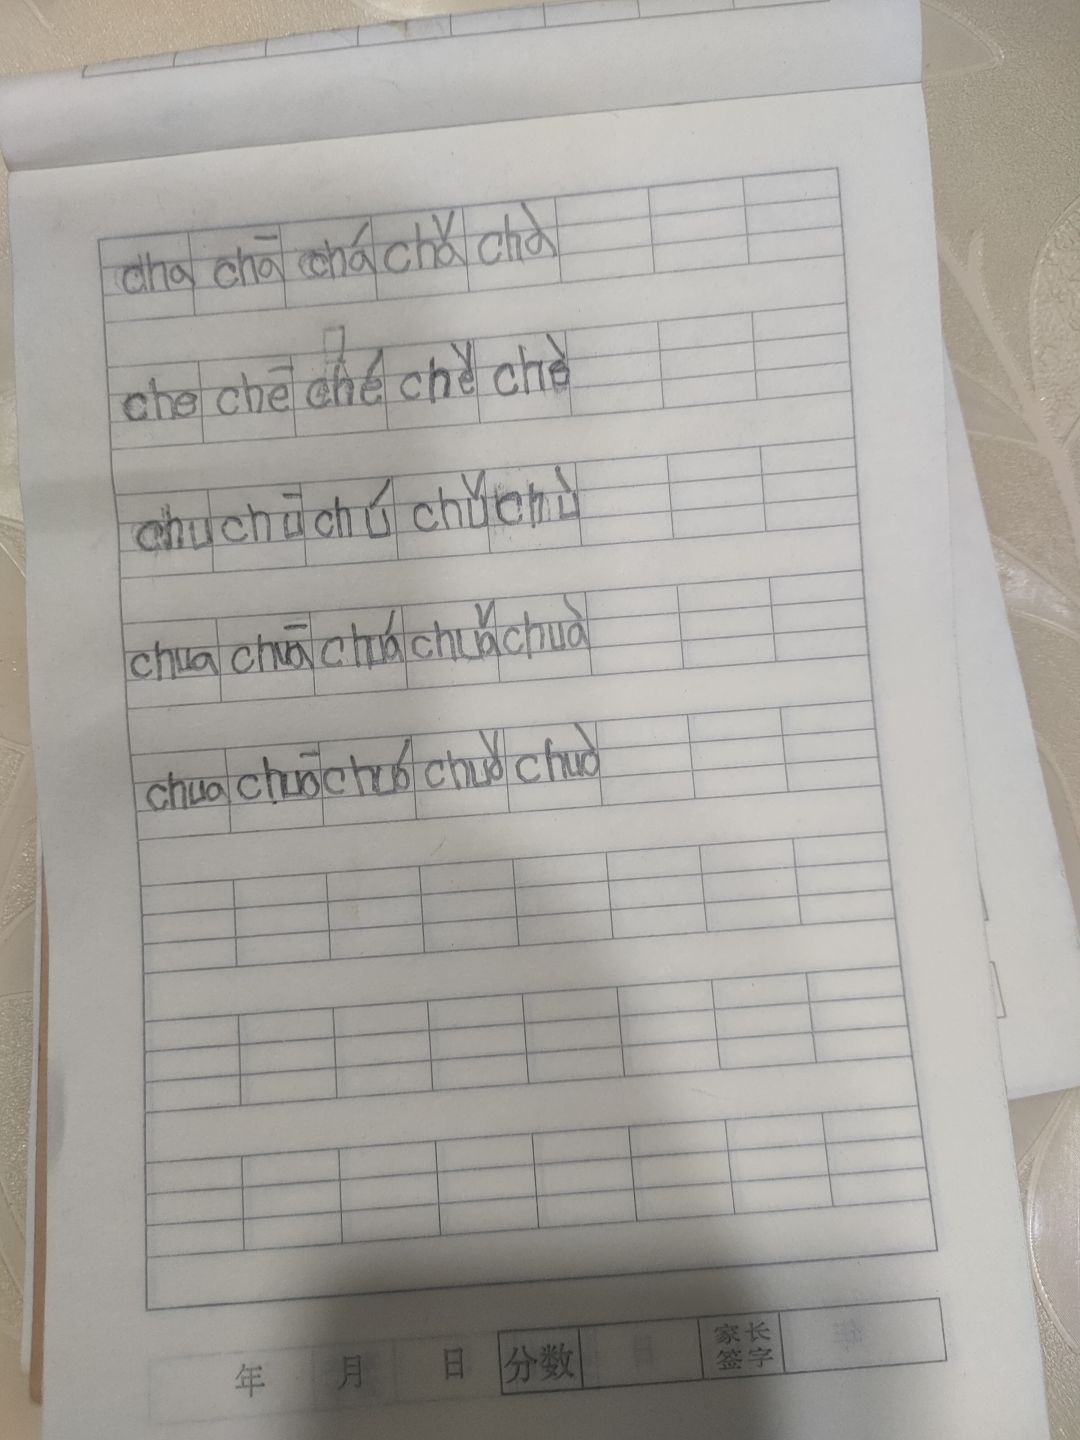 cha chā chá chǎ chà
che chē ché chě chè
chu chū chú chǔ chù
chua chuā chuá chuǎ chuà
chua chuō chuó chuǒ chuò
年 月 日 分数 家长签字